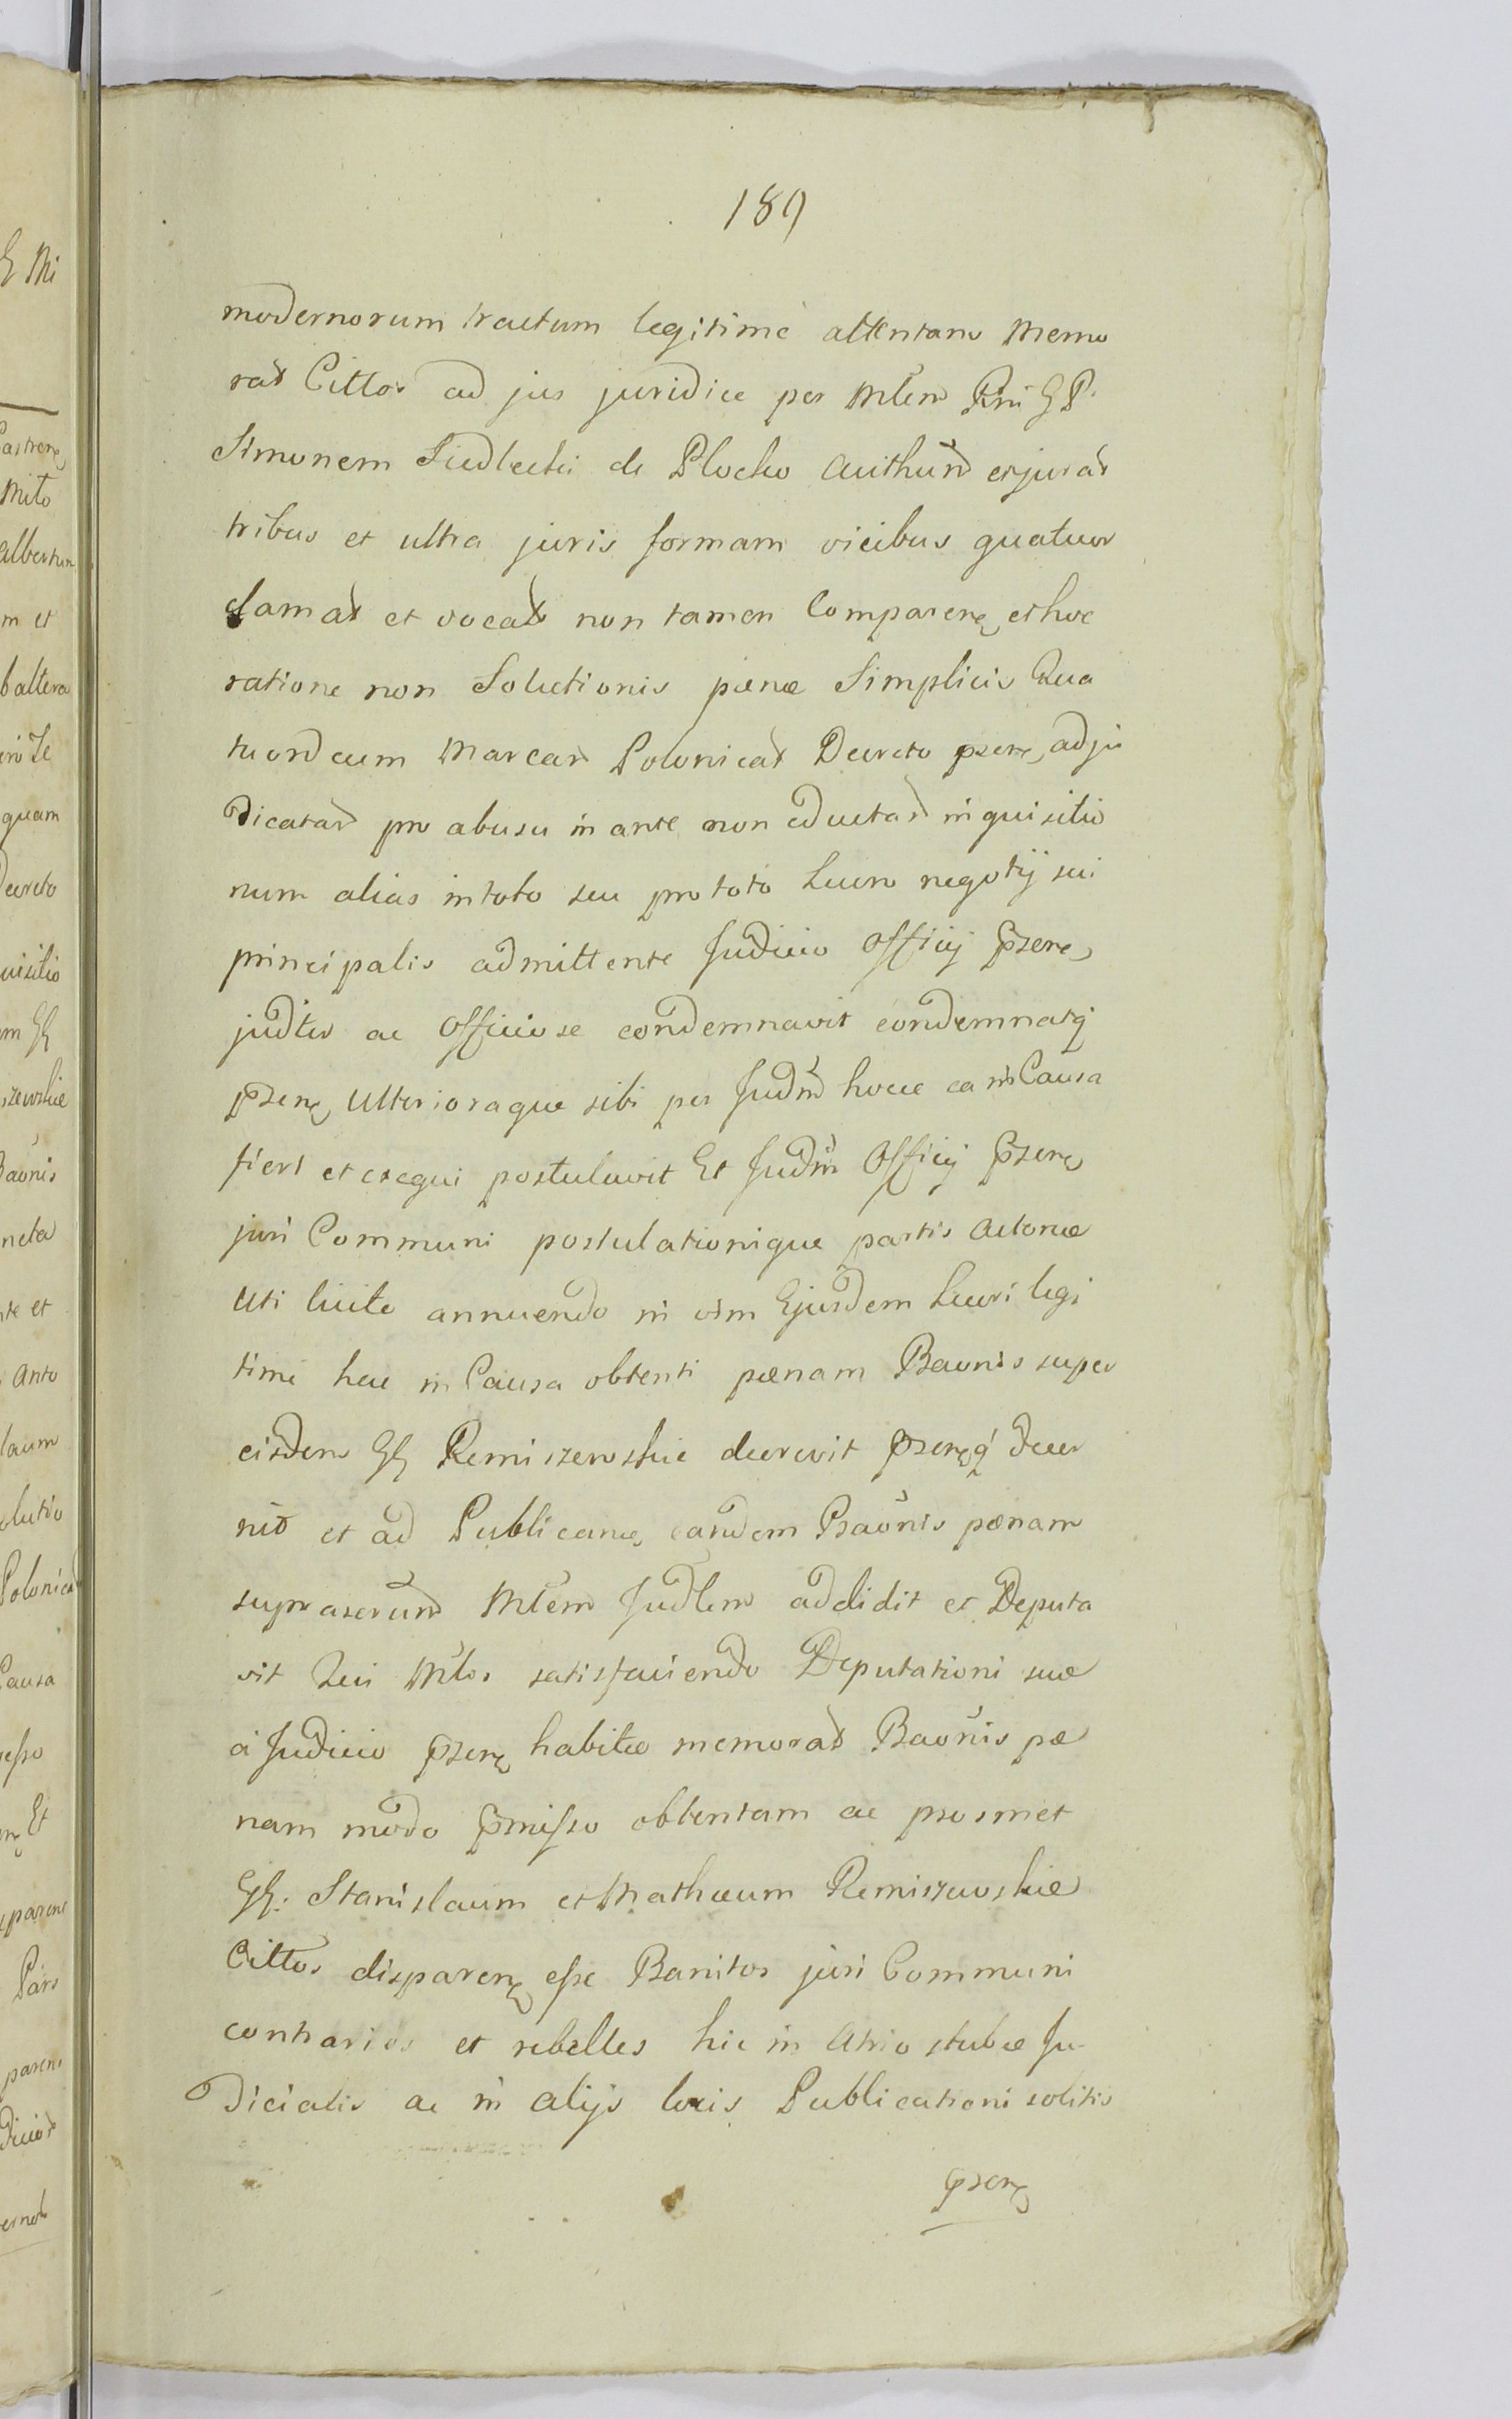 189
modernorum tractum legitime attentans memo
rat Cittos ad jus juridice per Mlem Rni G P.
Simonem Siedlecki de Plocko Authūm et jurat
tribus et ultra juris formam vicibus quatuor
clamat et vocat non tamen Comparen et hoc
ratione non Solutionis pænæ Simplicis Qua
tuordecim Marcar Polonicat Decreto psen adju
dicatar pro abusu in ante non eductar inquisitio
num alias in toto seu pro toto Lucro negotij sui
principalis admittente Judicio Officij Psen
judter ac Officiose condemnavit condemnatq
psen Ulterioraque sibi per Judm hocce ea in Causa
fieri et exequi postulavit Et Judm Officij Psen
juri Communi postulationique partis Actoreæ
Uti licite annuendo in vim Ejusdem Lucri legi
time hac in Causa obtenti pænam Baonis super
eisdem GG Remiszewskie decrevit psenq decer
nit et ad Publicanđ eandem Baōnis pænam
suprascrtum Mlem Judlem addidit et Deputa
vit Qui Mlis satisfaciendo Deputationi suæ
a Judicio psen habitæ memorat Baonis pæ
nam modo pmisso obtentam ac prosmet
GG: Stanislaum et Mathæum Remiszewskie
Cittos disparen esse Banitos juri Communi
contrarios et rebelles hic in Atrio stubæ Ju-
dicialis ac in alijs locis Publicationi solitis
psen
Mi
Castren
Mito
Albertum
m et
b altera
quam
Decreto
uisitio
m GG
szewskie
Baonis
neta
te et
Anto
laum
olutio
Polonica
Causa
esso
Et
paren
Pars
paren